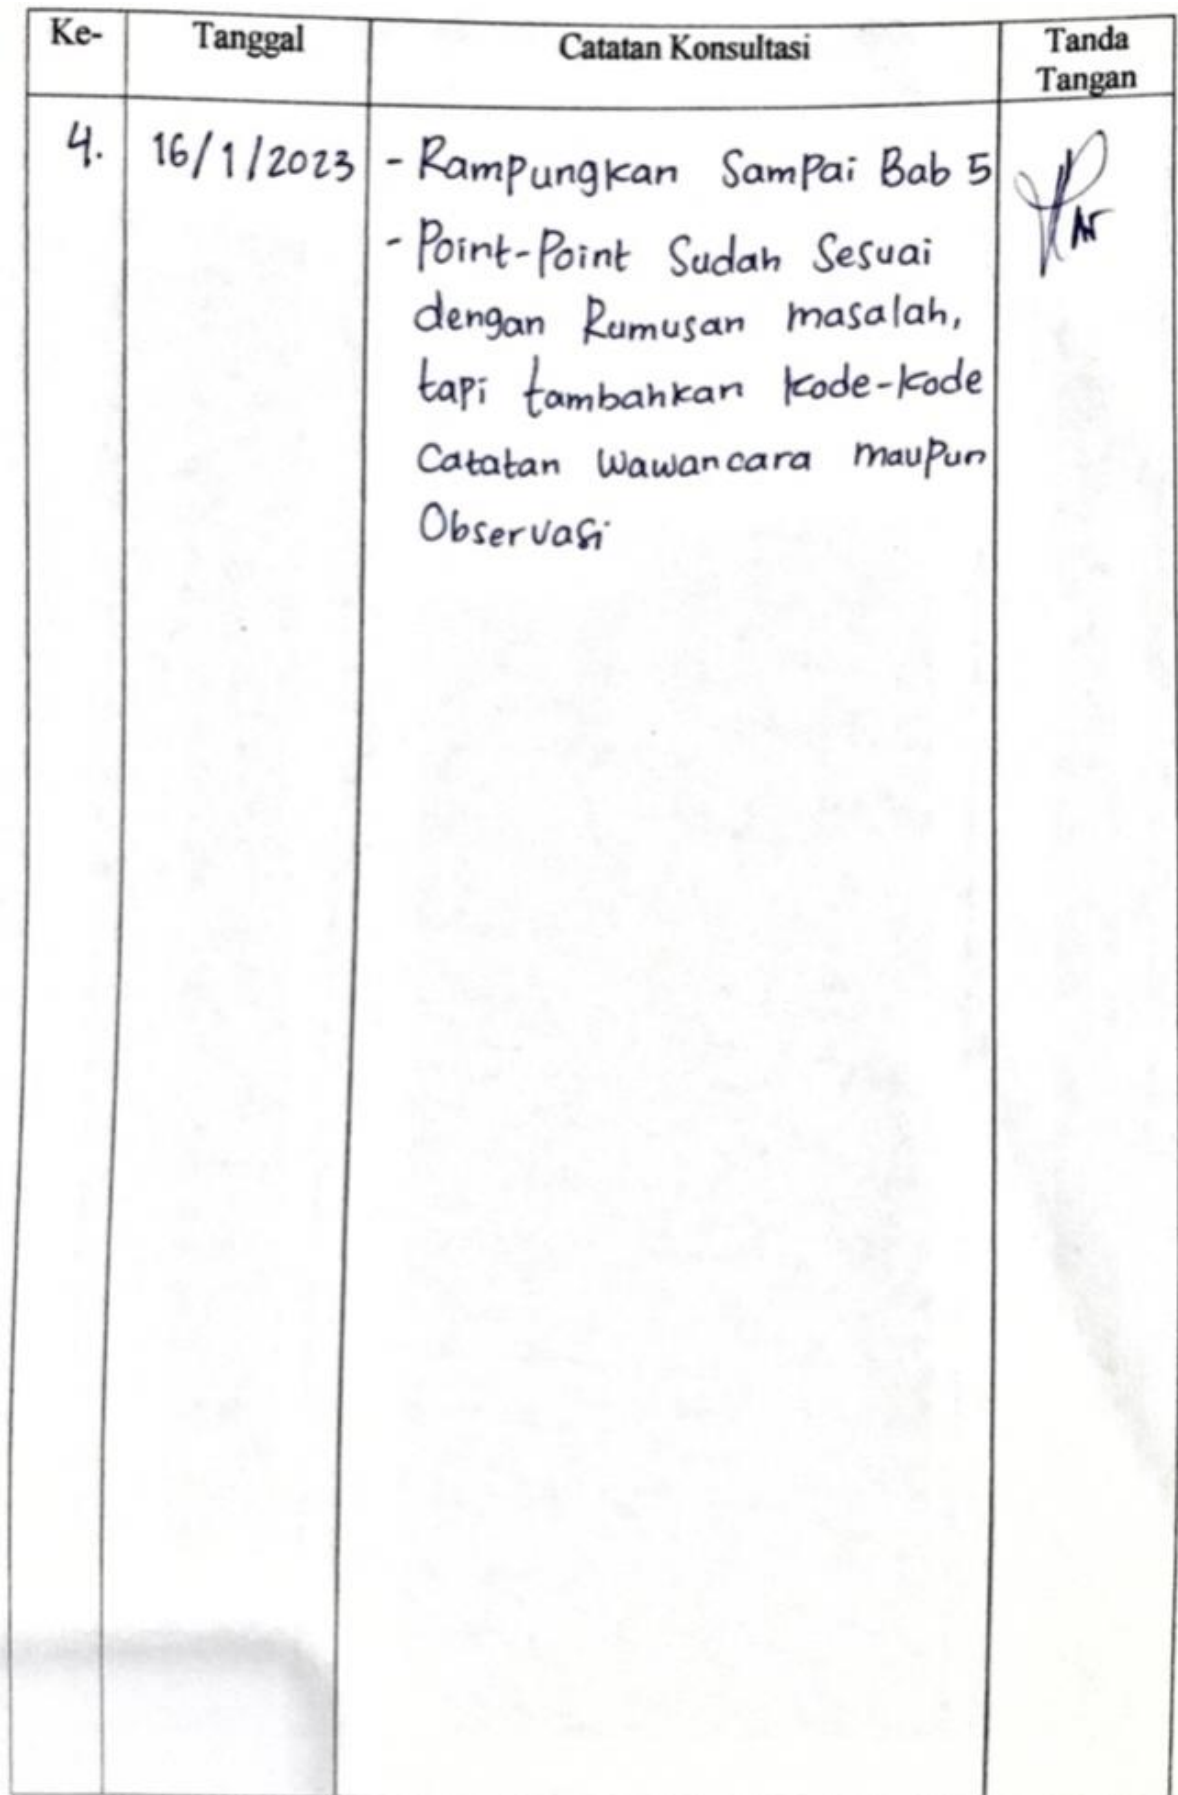 Ke- Tanggal Catatan Konsultasi Tanda
Tangan
4. 16/1/2023 - Rampungkan Sampai Bab 5
- Point-Point Sudah Sesuai
dengan Rumusan masalah,
tapi tambahkan kode-kode
Catatan Wawancara maupun
Observasi